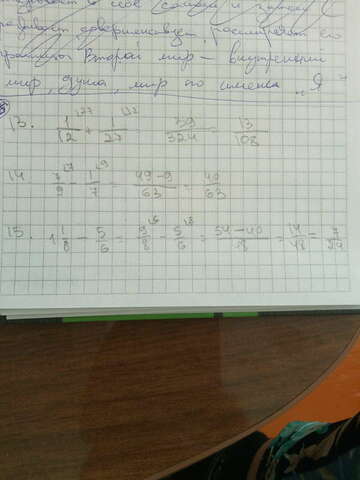 развивает, совершенствует, расширяет его
границы. Второй мир – внутренний
мир, душа, мир по имени „Я“
13. 1/12 + 1/27 39/324 = 13/108
14. 7/9 - 1/7 = 49-9/63 = 40/63
15. 1 1/8 - 5/6 = 9/8 - 5/6 = 54-40/48 = 14/48 = 7/24